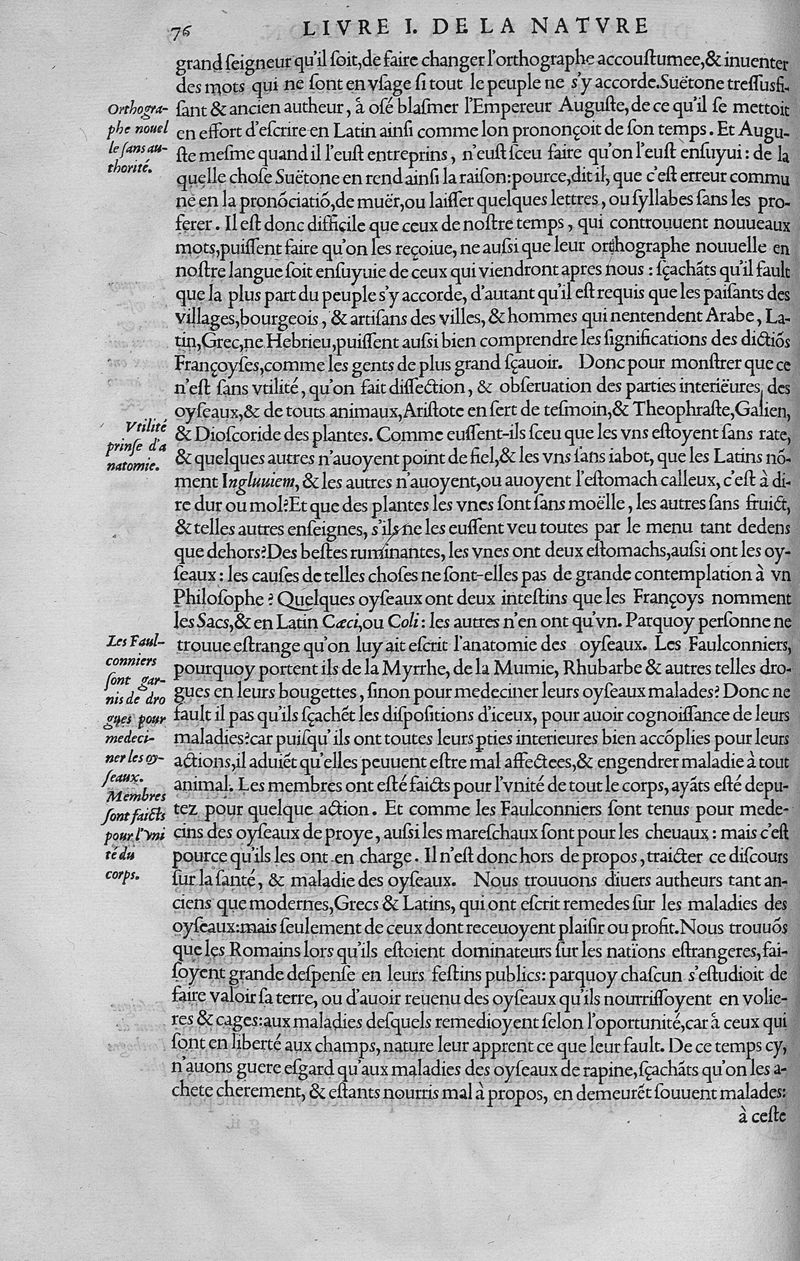 76 LIVRE I. DE LA NATVRE
grand ſeigneur qu'il ſoit,de faire changer l'orthographe accouſtumee,& inuenter
des mots qui ne ſont en vſage ſi tout le peuple ne s'y accorde.Suëtone treſſuſfi-
Orthogra-
phe nouel
le ſans au-
thorité.
ſant & ancien autheur, á oſé blaſmer l'Empereur Auguſte, de ce qu'il ſe mettoit
en effort d'eſcrire en Latin ainſi comme lon prononçoit de ſon temps. Et Augu-
ſte meſme quand il l'euſt entreprins, n'euſt ſceu faire qu'on l'euſt enſuyui: de la
quelle choſe Suëtone en rend ainſi la raiſon:pource,dit il, que c'eſt erreur commu
ne en la pronõciatiõ,de muër,ou laiſſer quelques lettres, ou ſyllabes ſans les pro-
ferer. Il eſt donc difficile que ceux de noſtre temps, qui controuuent nouueaux
mots,puiſſent faire qu'on les reçoiue, ne auſsi que leur orthographe nouuelle en
noſtre langue ſoit enſuyuie de ceux qui viendront apres nous: ſçachãts qu'il fault
que la plus part du peuple s'y accorde, d'autant qu'il eſt requis que les païſants des
villages,bourgeois, & artiſans des villes, & hommes qui nentendent Arabe, La-
tin,Grec,ne Hebrieu,puiſſent auſsi bien comprendre les ſignifications des dictiõs
Françoyſes,comme les gents de plus grand ſçauoir. Donc pour monſtrer que ce
n'eſt ſans vtilité, qu'on fait diſſection, & obſeruation des parties interiëures, des
oyſeaux,& de touts animaux,Ariſtote en ſert de teſmoin,& Theophraſte,Galien,
Vtilité
prinſe d'a
natomie.
& Dioſcoride des plantes. Comme euſſent-ils ſceu que les vns eſtoyent ſans rate,
& quelques autres n'auoyent point de fiel,& les vns ſans iabot, que les Latins nõ-
ment Ingluuiem, & les autres n'auoyent,ou auoyent l'eſtomach calleux, c'eſt à di-
re dur ou mol?Et que des plantes les vnes ſont ſans moëlle, les autres ſans fruict,
& telles autres enſeignes, s'ils ne les euſſent veu toutes par le menu tant dedens
que dehors?Des beſtes ruminantes, les vnes ont deux eſtomachs,auſsi ont les oy-
ſeaux: les cauſes de telles choſes ne ſont-elles pas de grande contemplation à vn
Philoſophe? Quelques oyſeaux ont deux inteſtins que les Françoys nomment
les Sacs,& en Latin Cæci,ou Coli: les autres n'en ont qu'vn. Parquoy perſonne ne
Les Faul-
conniers
ſont gar-
nis de dro
gues pour
medeci-
ner les oy-
ſeaux.
trouue eſtrange qu'on luy ait eſcrit l'anatomie des oyſeaux. Les Faulconniers,
pourquoy portent ils de la Myrrhe, de la Mumie, Rhubarbe & autres telles dro-
gues en leurs bougettes, ſinon pour medeciner leurs oyſeaux malades? Donc ne
fault il pas qu'ils ſçachẽt les diſpoſitions d'iceux, pour auoir cognoiſſance de leurs
maladies?car puiſqu'ils ont toutes leurs pties interieures bien accõplies pour leurs
actions,il aduiẽt qu'elles peuuent eſtre mal affectees,& engendrer maladie à tout
Membres
ſont faicts
pour l'vni
té du
corps.
animal. Les membres ont eſté faicts pour l'vnité de tout le corps, ayãts eſté depu-
tez pour quelque action. Et comme les Faulconniers ſont tenus pour mede-
cins des oyſeaux de proye, auſsi les mareſchaux ſont pour les cheuaux: mais c'eſt
pource qu'ils les ont en charge. Il n'eſt donc hors de propos, traicter ce diſcours
ſur la ſanté, & maladie des oyſeaux. Nous trouuons diuers autheurs tant an-
ciens que modernes,Grecs & Latins, qui ont eſcrit remedes ſur les maladies des
oyſeaux:mais ſeulement de ceux dont receuoyent plaiſir ou profit.Nous trouuõs
que les Romains lors qu'ils eſtoient dominateurs ſur les natïons eſtrangeres,fai-
ſoyent grande deſpenſe en leurs feſtins publics: parquoy chaſcun s'eſtudioit de
faire valoir ſa terre, ou d'auoir reuenu des oyſeaux qu'ils nourriſſoyent en volie-
res & cages:aux maladies deſquels remedioyent ſelon l'oportunité,car á ceux qui
ſont en liberté aux champs, nature leur apprent ce que leur fault. De ce temps cy,
n'auons guere eſgard qu'aux maladies des oyſeaux de rapine,ſçachãts qu'on les a-
chete cherement, & eſtants nourris mal à propos, en demeurẽt ſouuent malades:
à ceſte